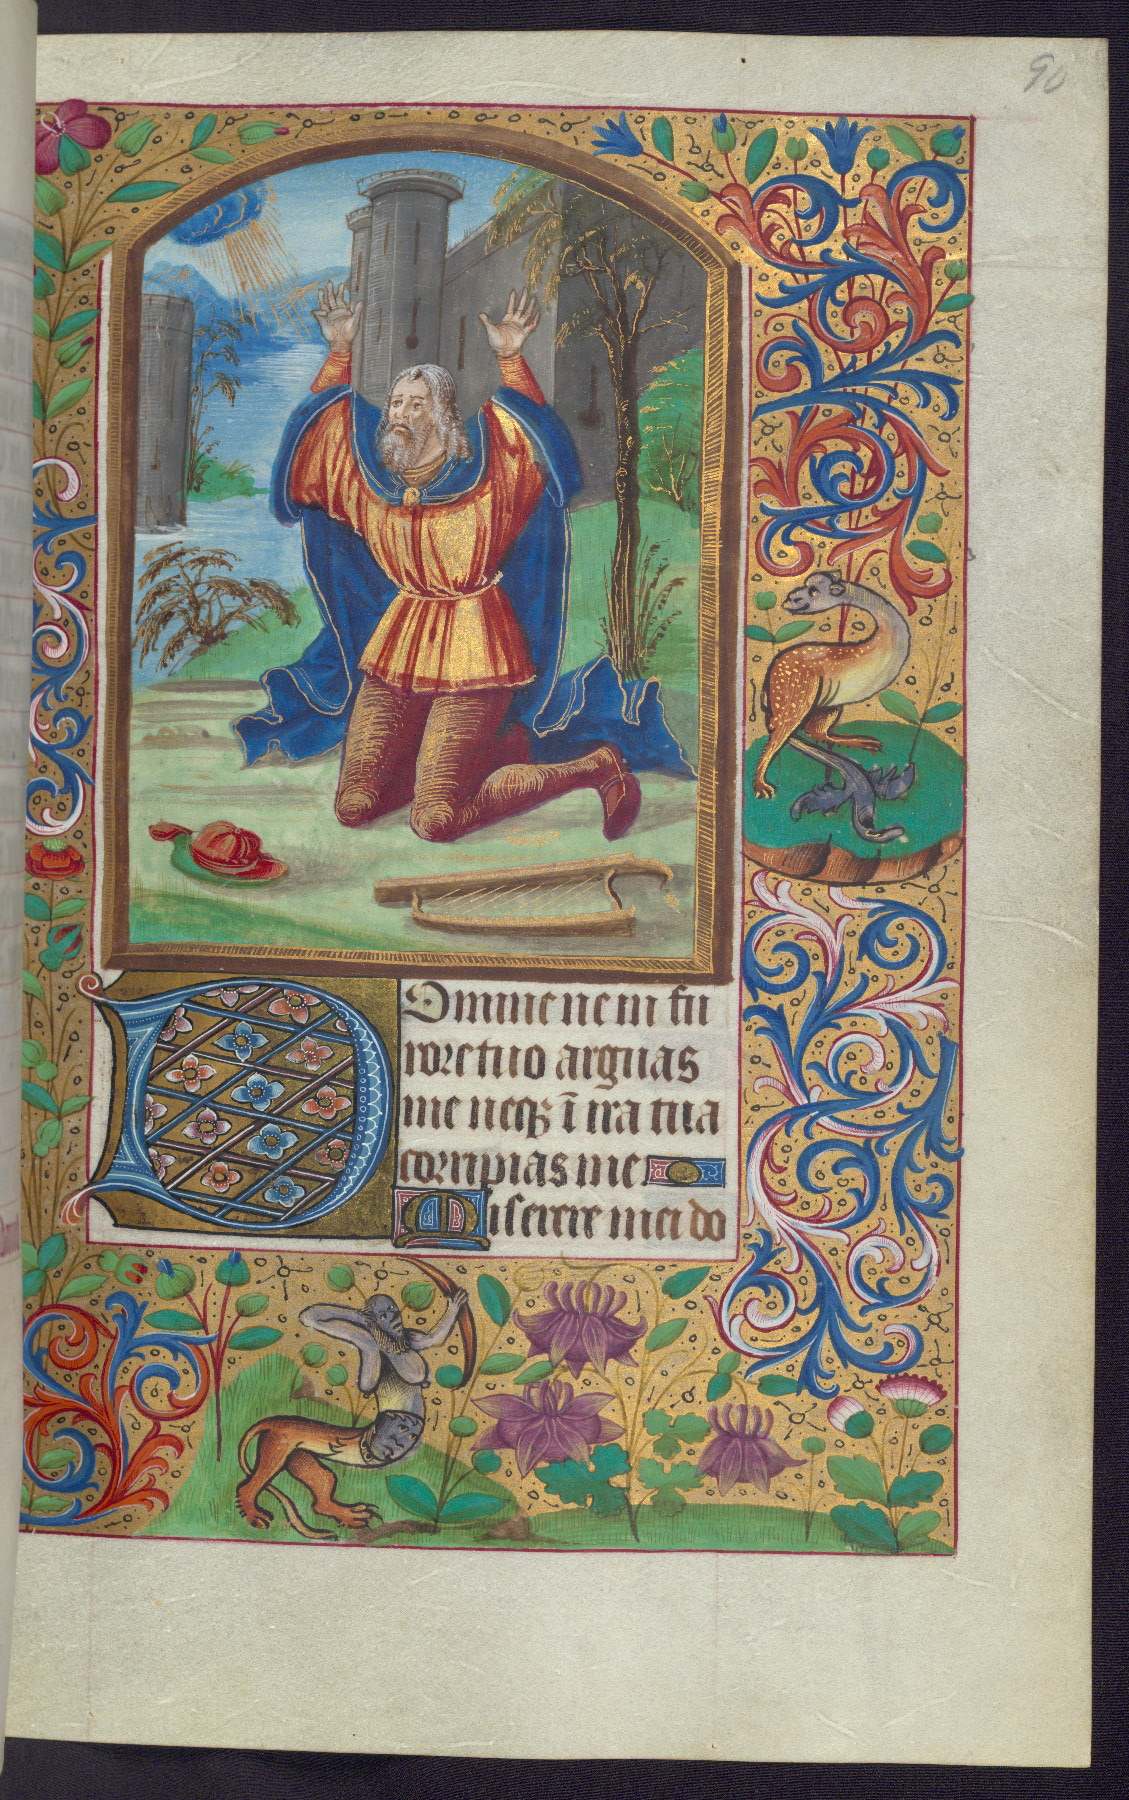 90
Domine ne in fu
rore tuo arguas
me neqꝫ ī ira tua
corripias me
Miserere mei do